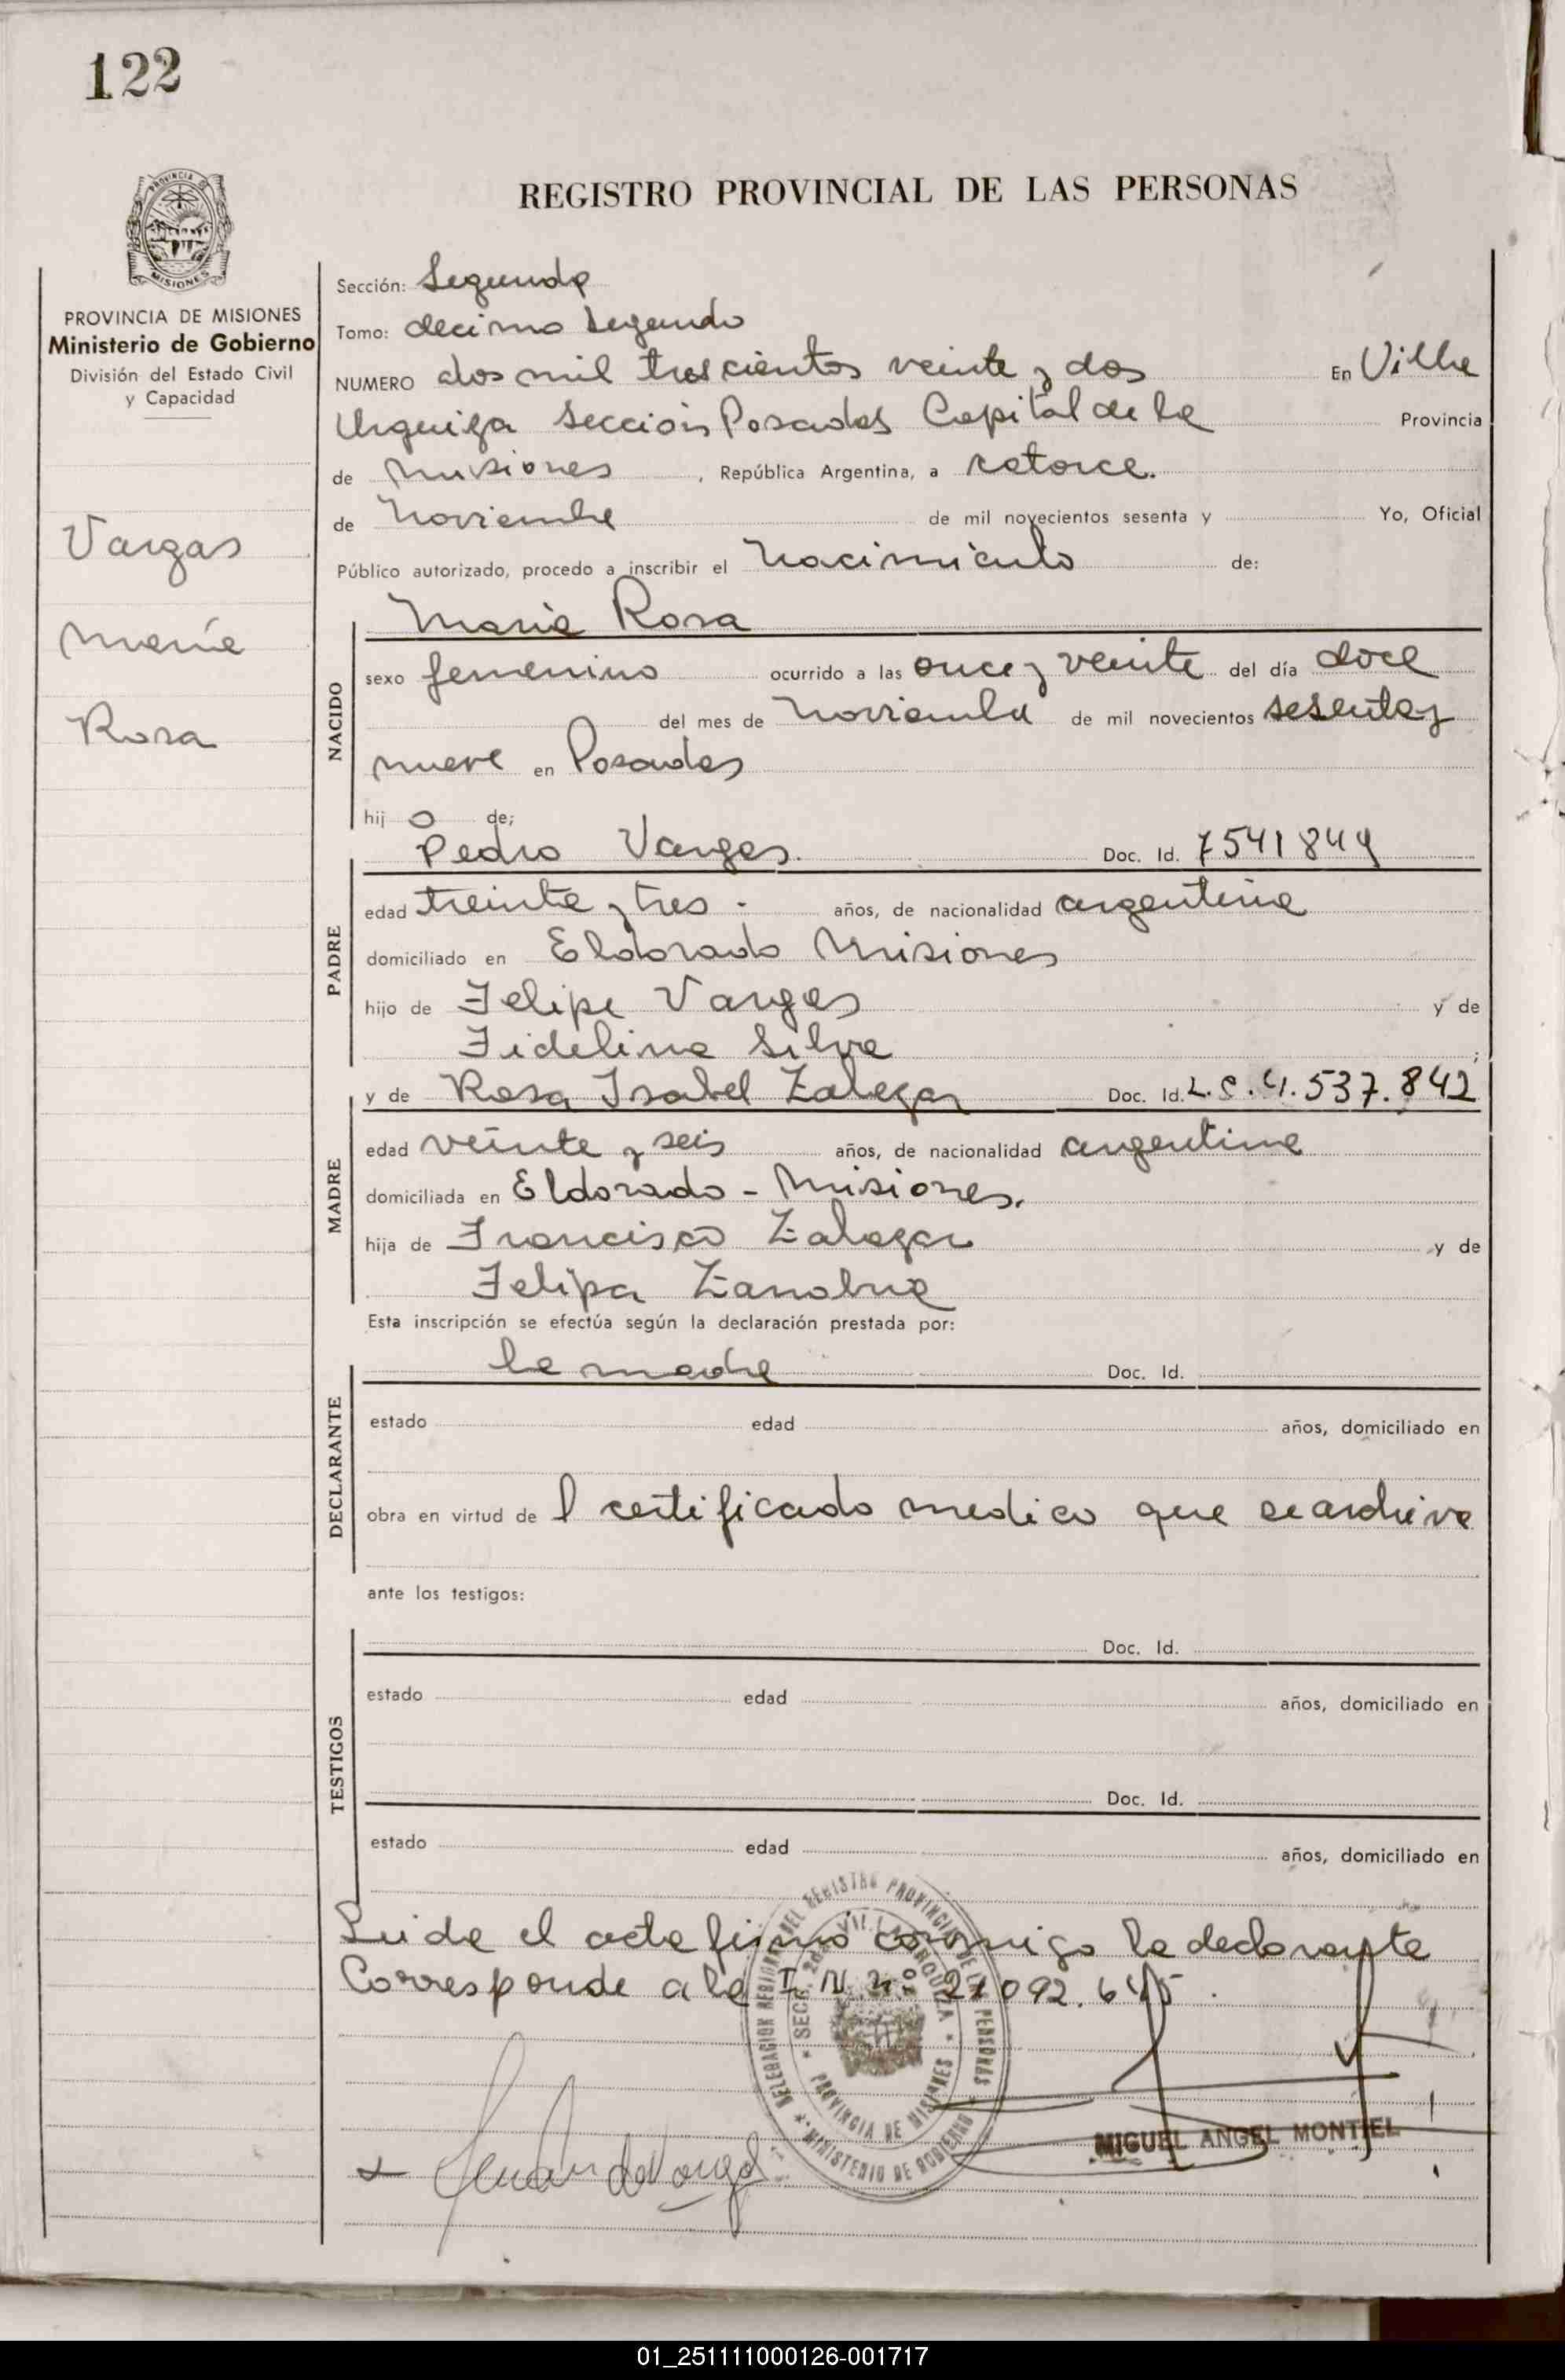 122
REGISTRO PROVINCIAL DE LAS PERSONAS
PROVINCIA DE MISIONES
Ministerio de Gobierno
División del Estado Civil
y Capacidad
Vargas
María
Rosa
Sección: Segunda
Tomo: decimo segundo
NUMERO dos mil trescientos veinte y dos En Villa
Urquiza sección Posadas Capital de la Provincia
de Misiones, República Argentina, a catorce.
de Noviembre de mil novecientos sesenta y Yo, Oficial
Público autorizado, procedo a inscribir el Nacimiento de:
Maria Rosa
NACIDO
sexo femenino ocurrido a las once y veinte del día doce
del mes de Noviembre de mil novecientos sesenta y
nueve en Posadas
hij o de;
Pedro Vargas. Doc. Id. 7541849
PADRE
edad treinta y tres. años, de nacionalidad argentina
domiciliado en Eldorado Misiones
hijo de Felipe Vargas y de
Fidelina Silva ;
y de Rosa Isabel Zalazar Doc. Id. L.C. 4.537.842
MADRE
edad veinte y seis años, de nacionalidad argentina
domiciliada en Eldorado - Misiones.
hija de Francisco Zalazar y de
Felipa
Esta inscripción se efectúa según la declaración prestada por:
la madre Doc. Id.
DECLARANTE
estado edad años, domiciliado en
obra en virtud de l certificado medico que se archiva
ante los testigos:
Doc. Id.
TESTIGOS
estado edad años, domiciliado en
Doc. Id.
estado edad años, domiciliado en
Leida el acta firmó conmigo la declarante
Corresponde a la I N. nº 21 092. 645.
DELEGACION REGIONAL DEL REGISTRO PROVINCIAL DE LAS PERSONAS
* SECC. 2da. VILLA URQUIZA *
PROVINCIA DE MISIONES
* MINISTERIO DE GOBIERNO *
MIGUEL ANGEL MONTIEL
01_251111000126-001717